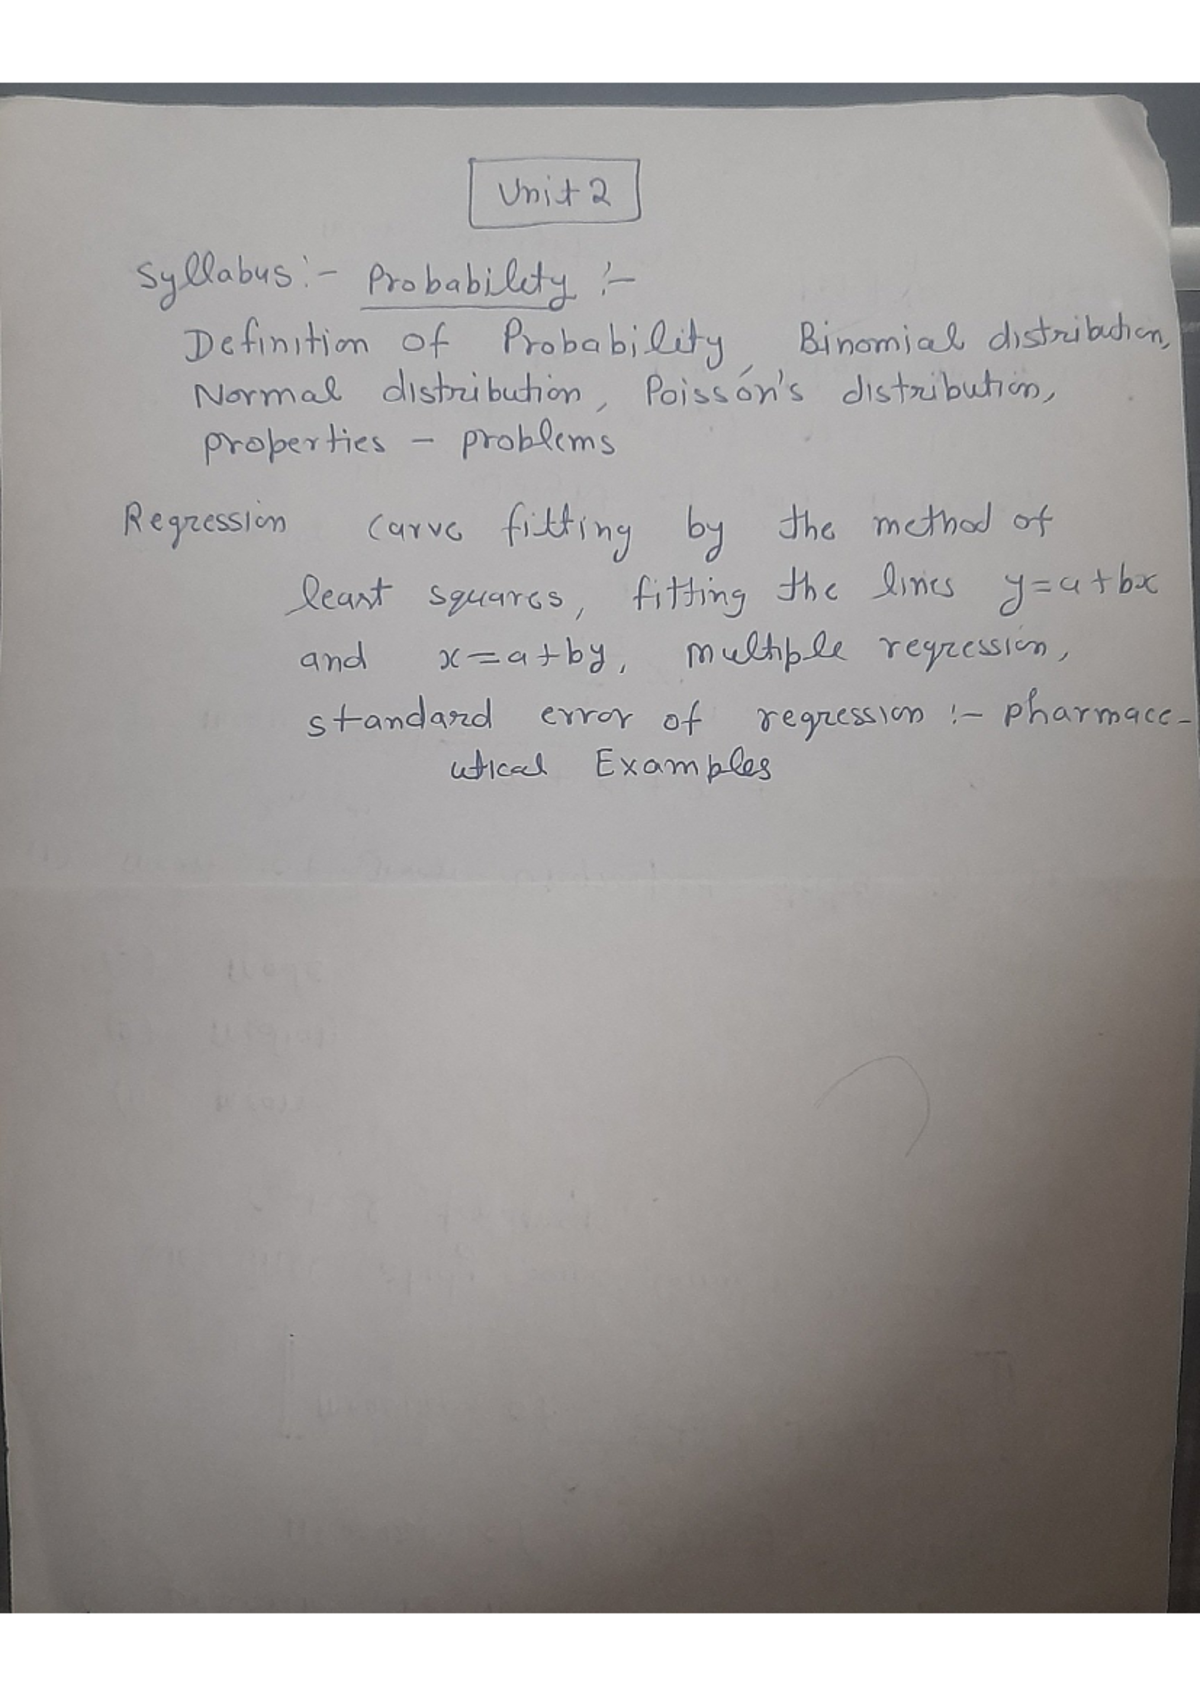 Unit 2
Syllabus :- Probability :-
Definition of Probability, Binomial distribution,
Normal distribution, Poisson's distribution,
properties - problems
Regression Curve fitting by the method of
least squares, fitting the lines y=a+bx
and x=a+by, multiple regression,
standard error of regression :- pharmace-
utical Examples